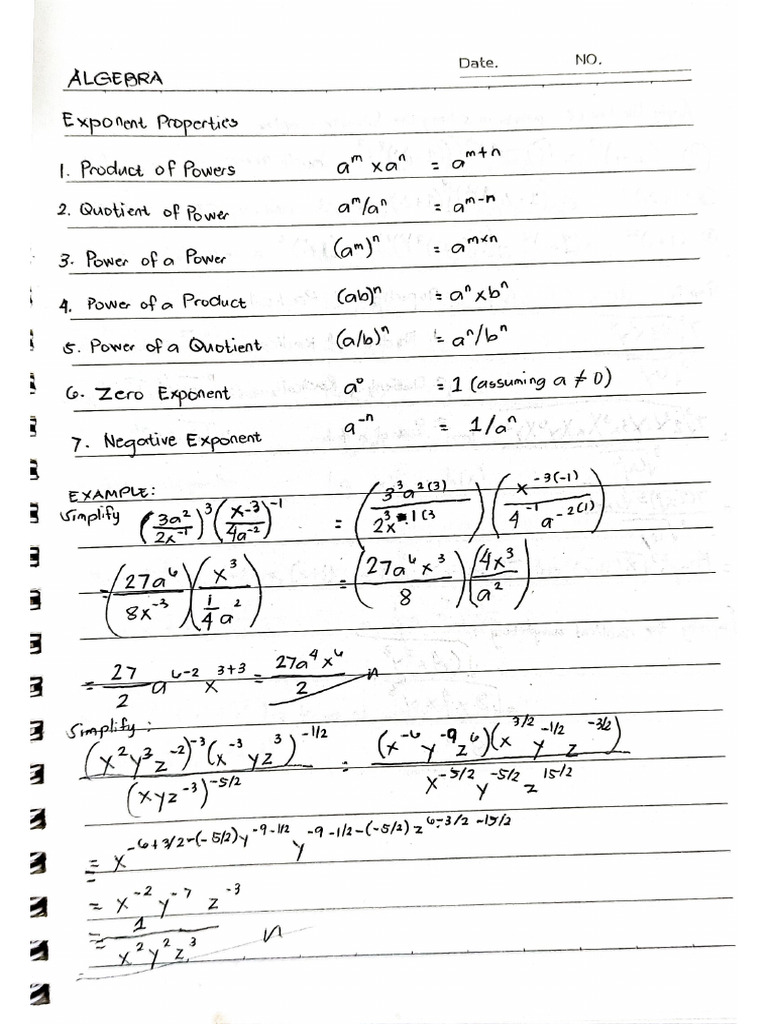 Date. NO.
ALGEBRA
Exponent Properties
1. Product of Powers a^m x a^n = a^(m+n)
2. Quotient of Power a^m/a^n = a^(m-n)
3. Power of a Power (a^m)^n = a^(m×n)
4. Power of a Product (ab)^n = a^n x b^n
5. Power of a Quotient (a/b)^n = a^n/b^n
6. Zero Exponent a^0 = 1 (assuming a ≠ 0)
7. Negative Exponent a^(-n) = 1/a^n
EXAMPLE:
Simplify (3a^2/2x^(-1))^3 (x^(-3)/4a^(-2))^(-1) = (3^3 a^(2(3))/2^3 x^(-1(3)) (x^(-3(-1))/4^(-1) a^(-2(1)))
= (27a^6/8x^(-3)) (x^3/(1/4 a^2)) = (27a^6 x^3/8) (4x^3/a^2)
= 27/2 a^(6-2) x^(3+3) = 27a^4 x^6/2
Simplify:
(x^2 y^3 z^(-2))^(-3) (x^(-3) y z^3)^(-1/2) / (xyz^(-3))^(-5/2) = (x^(-6) y^(-9) z^6) (x^(3/2) y^(-1/2) z^(-3/2)) / x^(-5/2) y^(-5/2) z^(15/2)
= x^(-6+3/2-(-5/2)) y^(-9-1/2) y^(-9-1/2-(-5/2)) z^(6-3/2-15/2)
= x^(-2) y^(-7) z^(-3)
= 1/x^2 y^2 z^3